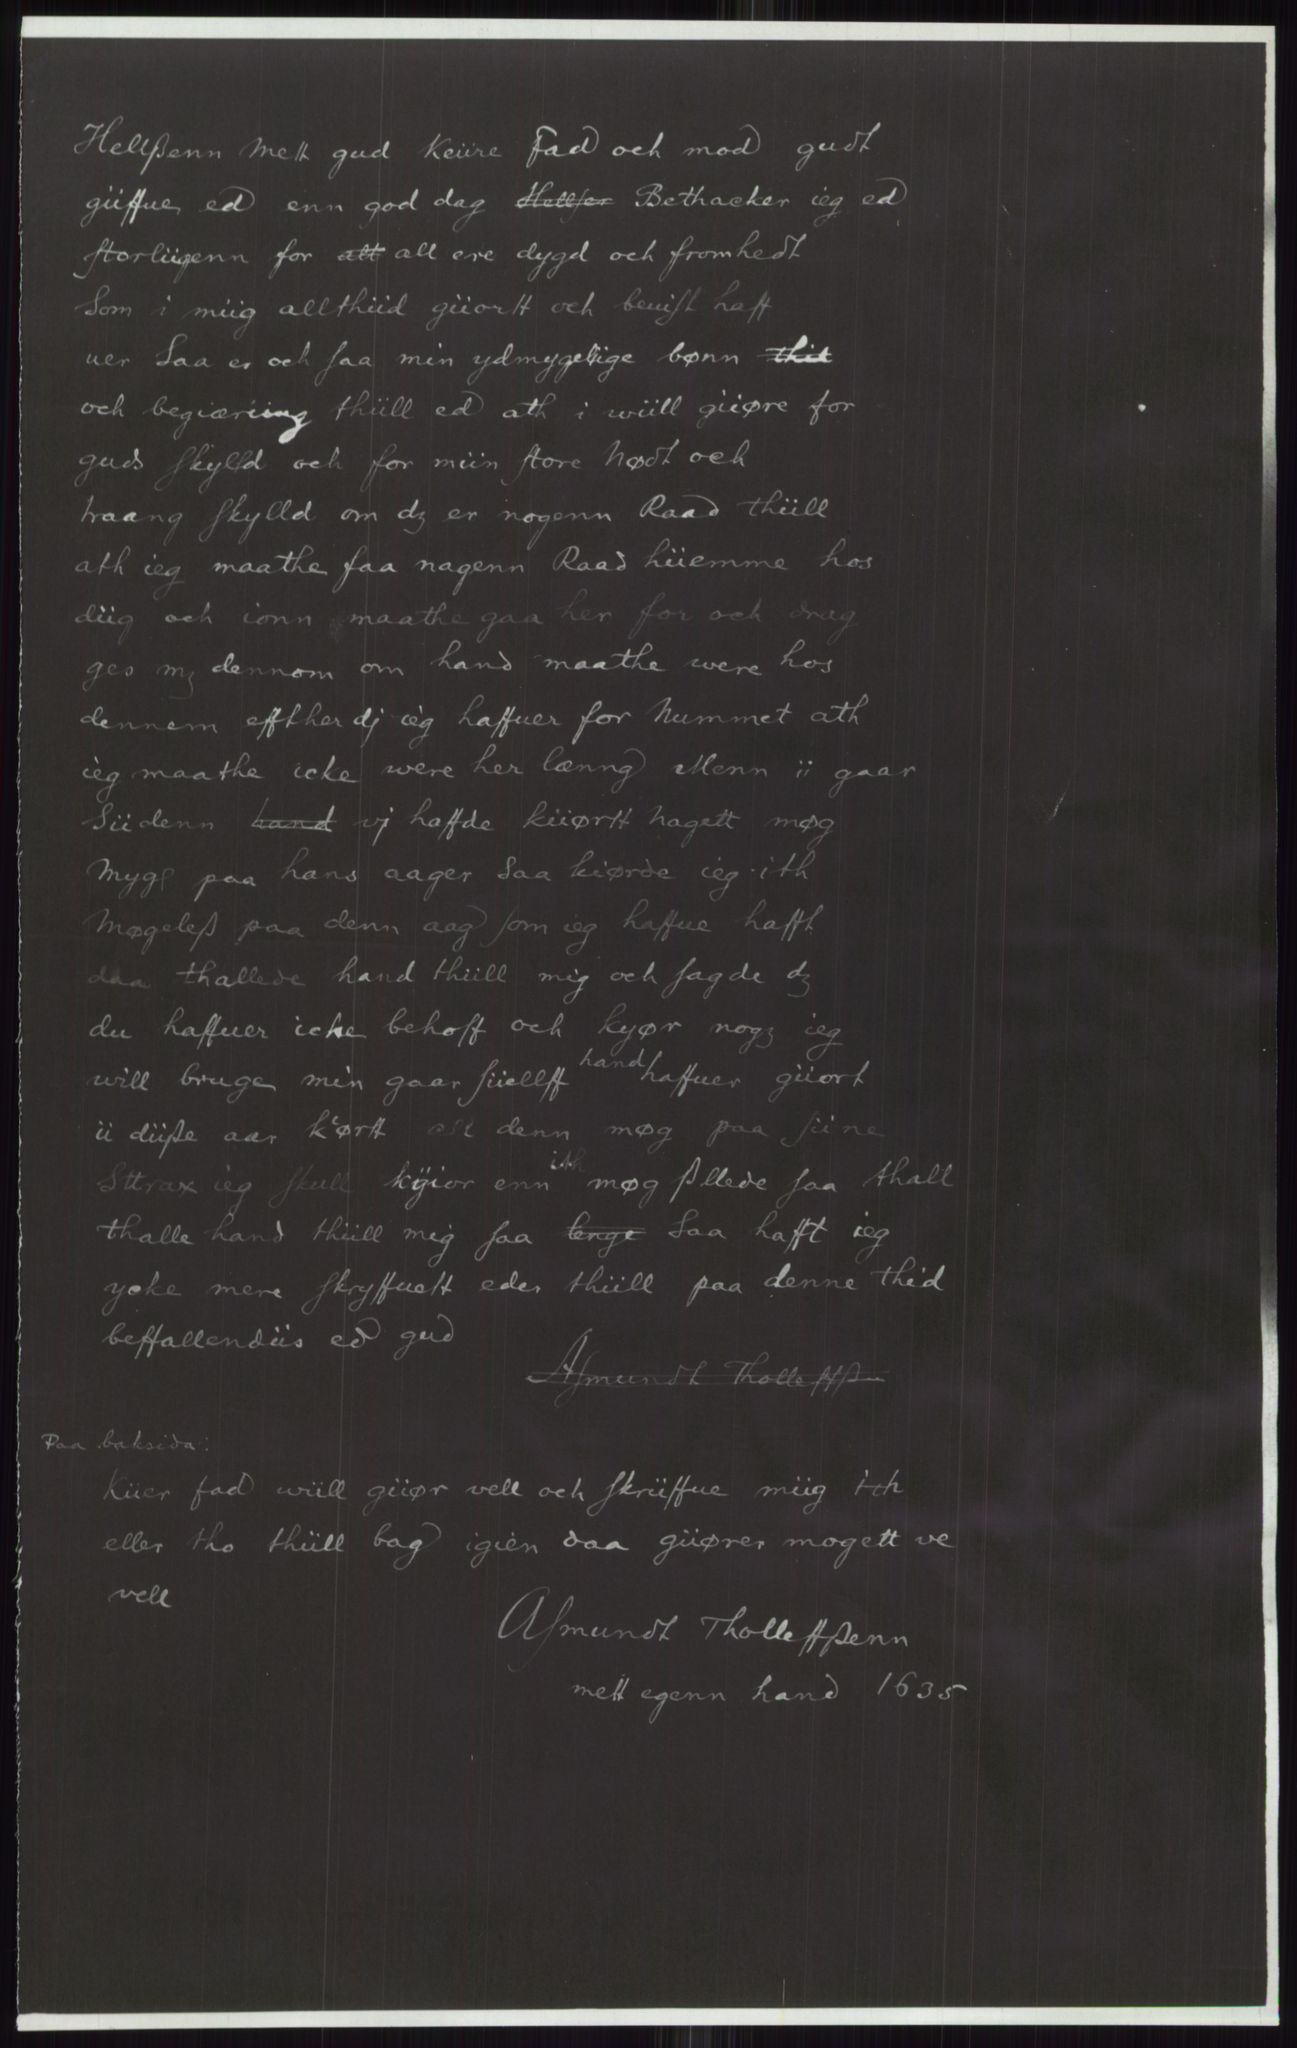 Hellßenn Mett gud Keiire Fad och mod gudt
giiffue ed enn god dag Hellser Bethacker ieg ed
storliigenn for alt all ere dygd och fromhedt
Som i miig allthiid giiortt och beuist haff
uer Saa er och saa min ydmygeliige bønn thil
och begiæriing thiill ed ath i wiill giiøre for
guds skylld och for miin store Nødt och
traang skylld om dz er nogenn Raad thiill
ath ieg maathe faa nagenn Raad hiiemme hos
diig och ionn maathe gaa her for och drag
ges mz dennom om hand maathe were hos
dennem effther dj ieg haffuer for Nummet ath
ieg maathe icke were her længe Menn ii gaar
Siidenn hand vj haffde kiiørtt nagett møg
Myge paa hans aager Saa kiørde ieg ith
Møgeleß paa denn aag som ieg haffue hafft
daa thallede hand thiill mig och sagde dz
du haffuer icke behoff och kyør nogz ieg
will bruge min gaar siiellff hand haffuer giiort
ii diiße aar kiørtt all denn møg paa siine
Sttrax ieg skull kÿiør enn ith møg ßllede saa thall
thalle hand thiill mig saa lenge Saa hafft ieg
ycke mere skryffuett eder thiill paa denne thid
beffallendiis ed gud
Asmundt Tholleffßen
Paa baksida:
Kiier fad wiill giiør vell och skriiffue miig ith
eller tho thiill bag igien daa giiører mogett ve
vell
Asmundt Tholleffßenn
mett egenn hand 1635